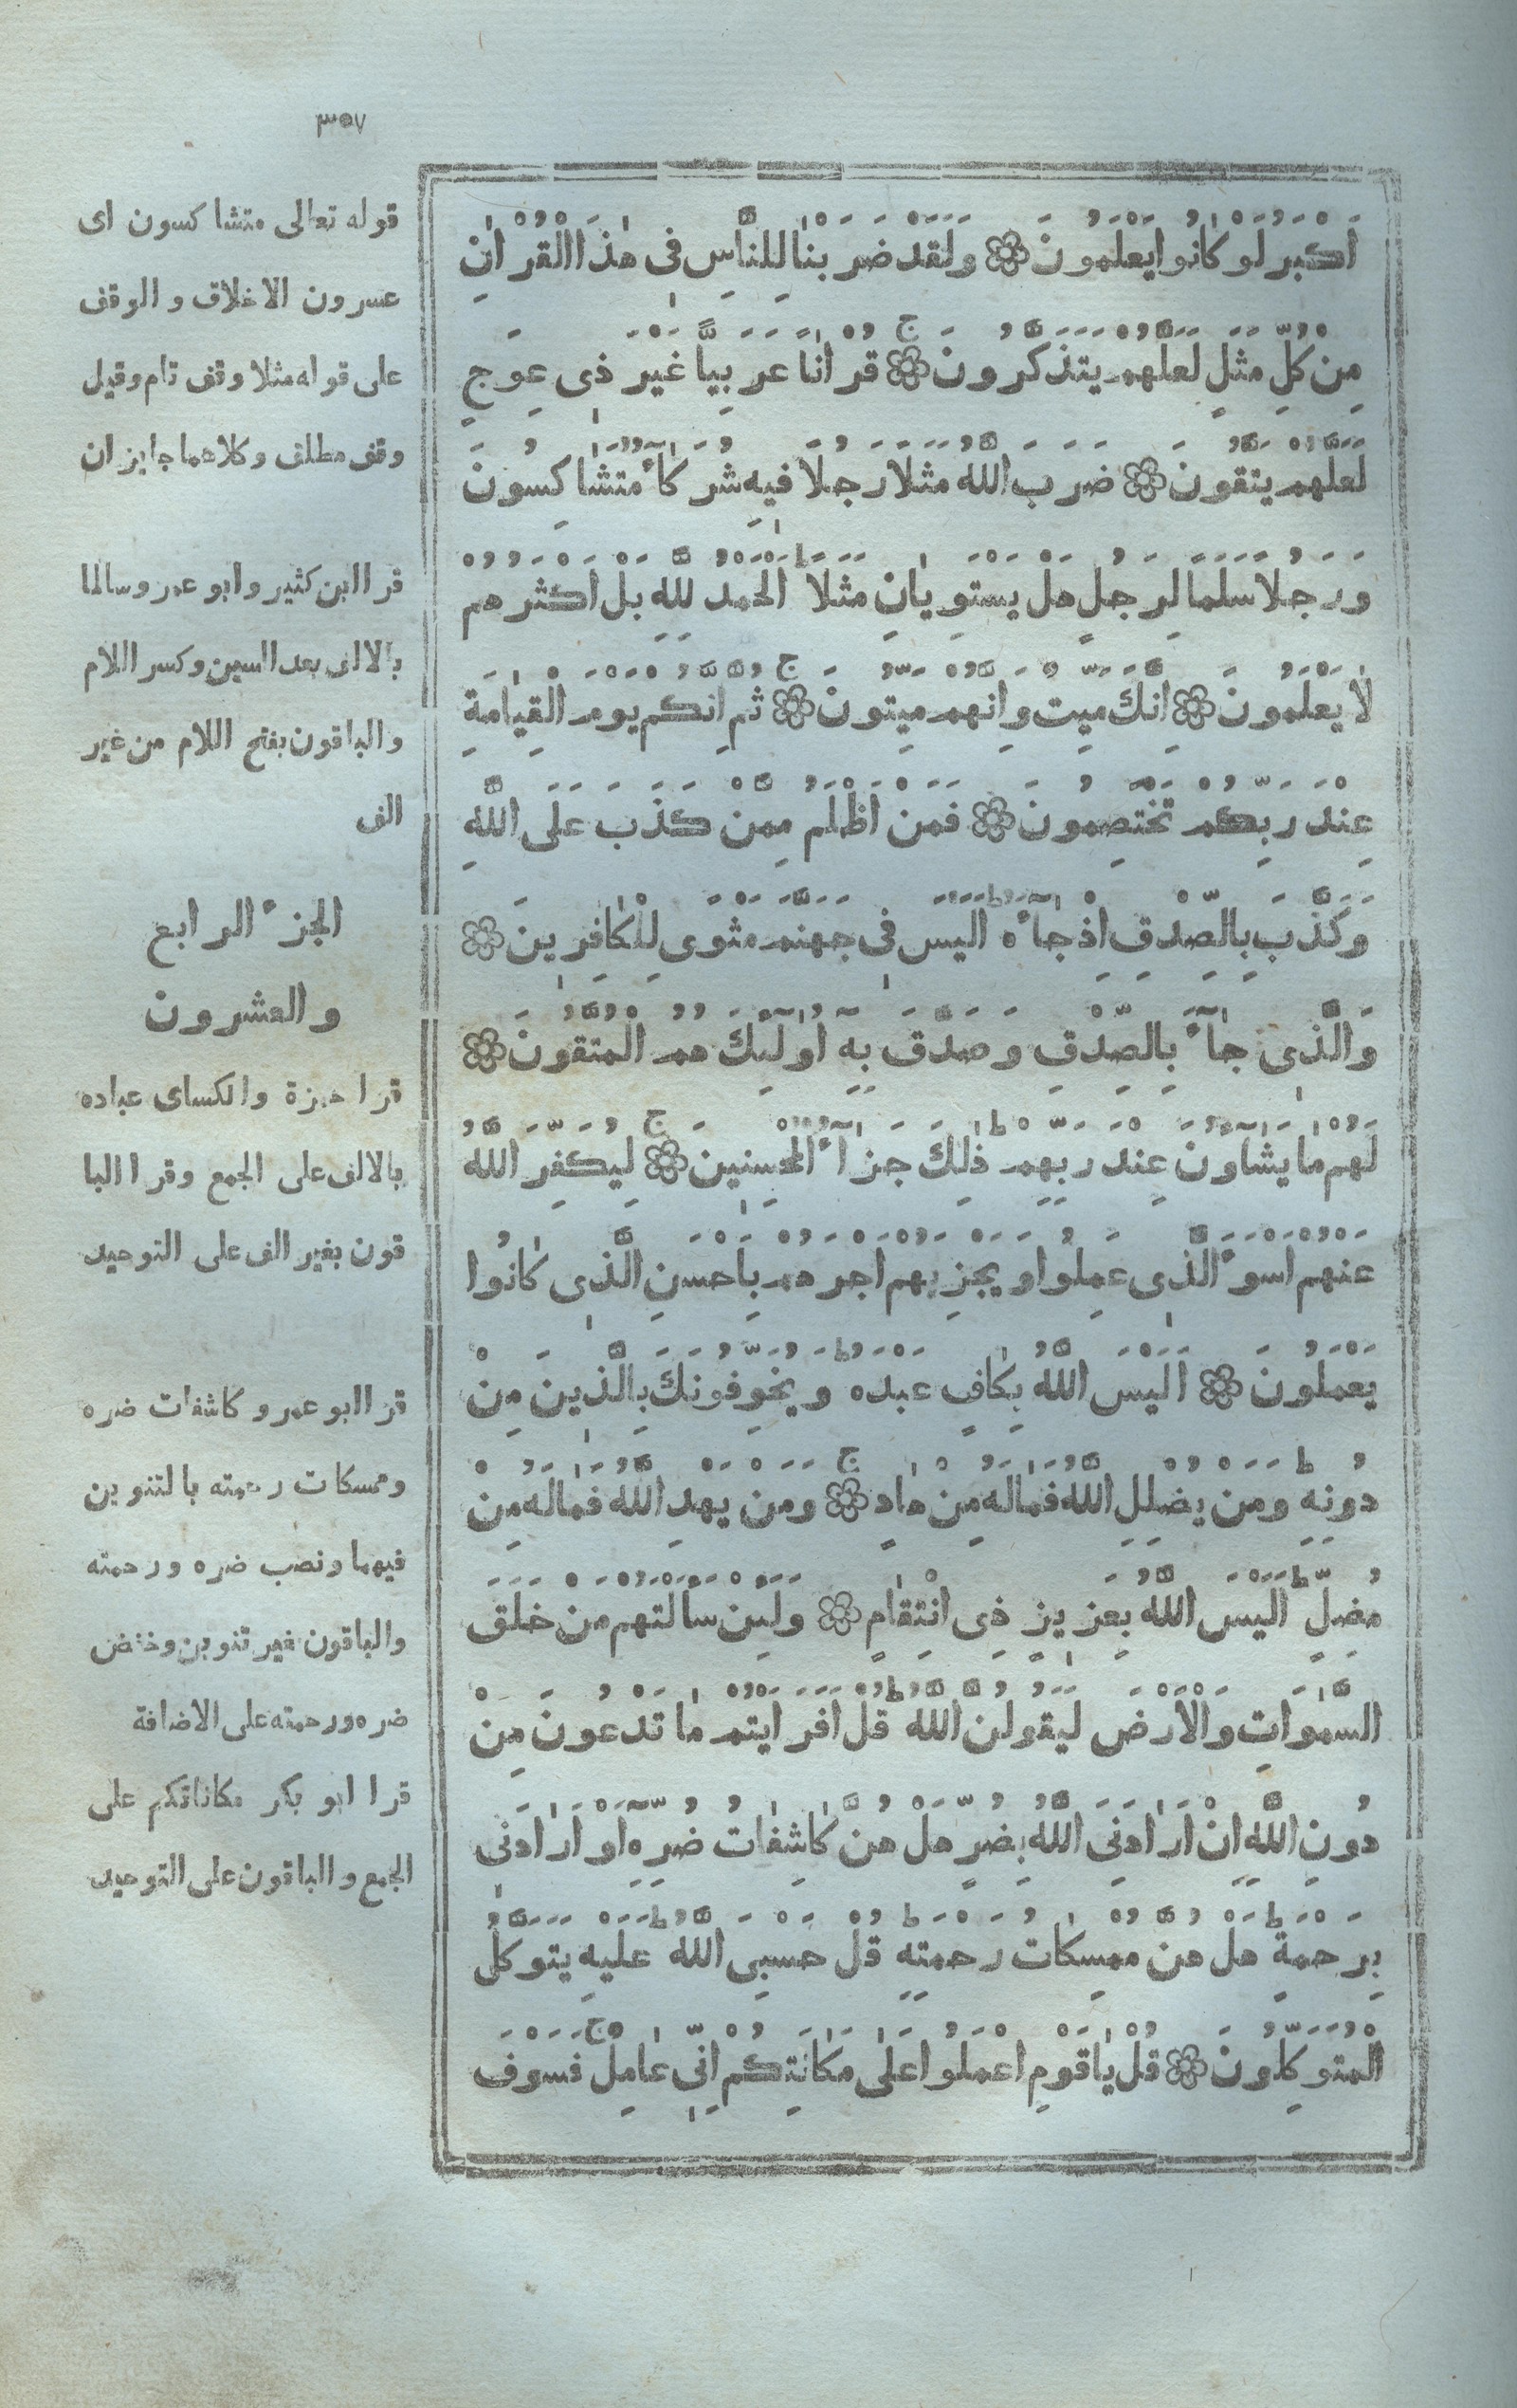 ٣٥٧
اَكْبَرُ لَوْ كَانُوا يَعْلَمُونَ ۞ وَلَقَدْ ضَرَبْنَا لِلنَّاسِ فِى هٰذَا الْقُرْاٰنِ
مِنْ كُلِّ مَثَلٍ لَعَلَّهُمْ يَتَذَكَّرُونَ ج ۞ قُرْاٰنًا عَرَبِيًّا غَيْرَ ذِى عِوَجٍ
لَعَلَّهُمْ يَتَّقُونَ ۞ ضَرَبَ اللّٰهُ مَثَلًا رَجُلًا فِيهِ شُرَكَآءُ مُتَشَاكِسُونَ
وَرَجُلًا سَلَمًا لِرَجُلٍ هَلْ يَسْتَوِيَانِ مَثَلًا ط اَلْحَمْدُ لِلّٰهِ بَلْ اَكْثَرُهُمْ
لَا يَعْلَمُونَ ۞ اِنَّكَ مَيِّتٌ وَاِنَّهُمْ مَيِّتُونَ ج ۞ ثُمَّ اِنَّكُمْ يَوْمَ الْقِيٰمَةِ
عِنْدَ رَبِّكُمْ تَخْتَصِمُونَ ۞ فَمَنْ اَظْلَمُ مِمَّنْ كَذَبَ عَلَى اللّٰهِ
وَكَذَّبَ بِالصِّدْقِ اِذْ جَآءَهُ ط اَلَيْسَ فِى جَهَنَّمَ مَثْوًى لِلْكَافِرِينَ ۞
وَالَّذِى جَآءَ بِالصِّدْقِ وَصَدَّقَ بِهِٓ اُولٰٓئِكَ هُمُ الْمُتَّقُونَ ۞
لَهُمْ مَا يَشَآؤُنَ عِنْدَ رَبِّهِمْ ط ذٰلِكَ جَزَآءُ الْمُحْسِنِينَ ج ۞ لِيُكَفِّرَ اللّٰهُ
عَنْهُمْ اَسْوَءَ الَّذِى عَمِلُوا وَيَجْزِيَهُمْ اَجْرَهُمْ بِاَحْسَنِ الَّذِى كَانُوا
يَعْمَلُونَ ۞ اَلَيْسَ اللّٰهُ بِكَافٍ عَبْدَهُ ط وَيُخَوِّفُونَكَ بِالَّذِينَ مِنْ
دُونِهِ ط وَمَنْ يُضْلِلِ اللّٰهُ فَمَا لَهُ مِنْ هَادٍ ج ۞ وَمَنْ يَهْدِ اللّٰهُ فَمَا لَهُ مِنْ
مُضِلٍّ ط اَلَيْسَ اللّٰهُ بِعَزِيزٍ ذِى انْتِقَامٍ ۞ وَلَئِنْ سَاَلْتَهُمْ مَنْ خَلَقَ
السَّمٰوَاتِ وَالْاَرْضَ لَيَقُولُنَّ اللّٰهُ ط قُلْ اَفَرَاَيْتُمْ مَا تَدْعُونَ مِنْ
دُونِ اللّٰهِ اِنْ اَرَادَنِىَ اللّٰهُ بِضُرٍّ هَلْ هُنَّ كَاشِفَاتُ ضُرِّهِٓ اَوْ اَرَادَنِى
بِرَحْمَةٍ هَلْ هُنَّ مُمْسِكَاتُ رَحْمَتِهِ ط قُلْ حَسْبِىَ اللّٰهُ ط عَلَيْهِ يَتَوَكَّلُ
الْمُتَوَكِّلُونَ ۞ قُلْ يَا قَوْمِ اعْمَلُوا عَلٰى مَكَانَتِكُمْ اِنِّى عَامِلٌ ج فَسَوْفَ
قوله تعالى متشاكسون اى
عسرون الاخلاق والوقف
على قوله مثلا وقف تام وقيل
وقف مطلق وكلاهما جايزان
قرا ابن كثير وابو عمرو سالما
بالالف بعد السين وكسر اللام
والباقون بفتح اللام من غير
الف
الجزء الرابع
والعشرون
قرا حمزة والكساى عباده
بالالف على الجمع وقرا البا
قون بغير الف على التوحيد
قرا ابو عمرو كاشفات ضره
وممسكات رحمته بالتنوين
فيهما ونصب ضره ورحمته
والباقون بغير تنوين وخفض
ضره ورحمته على الاضافة
قرا ابو بكر مكاناتكم على
الجمع والباقون على التوحيد